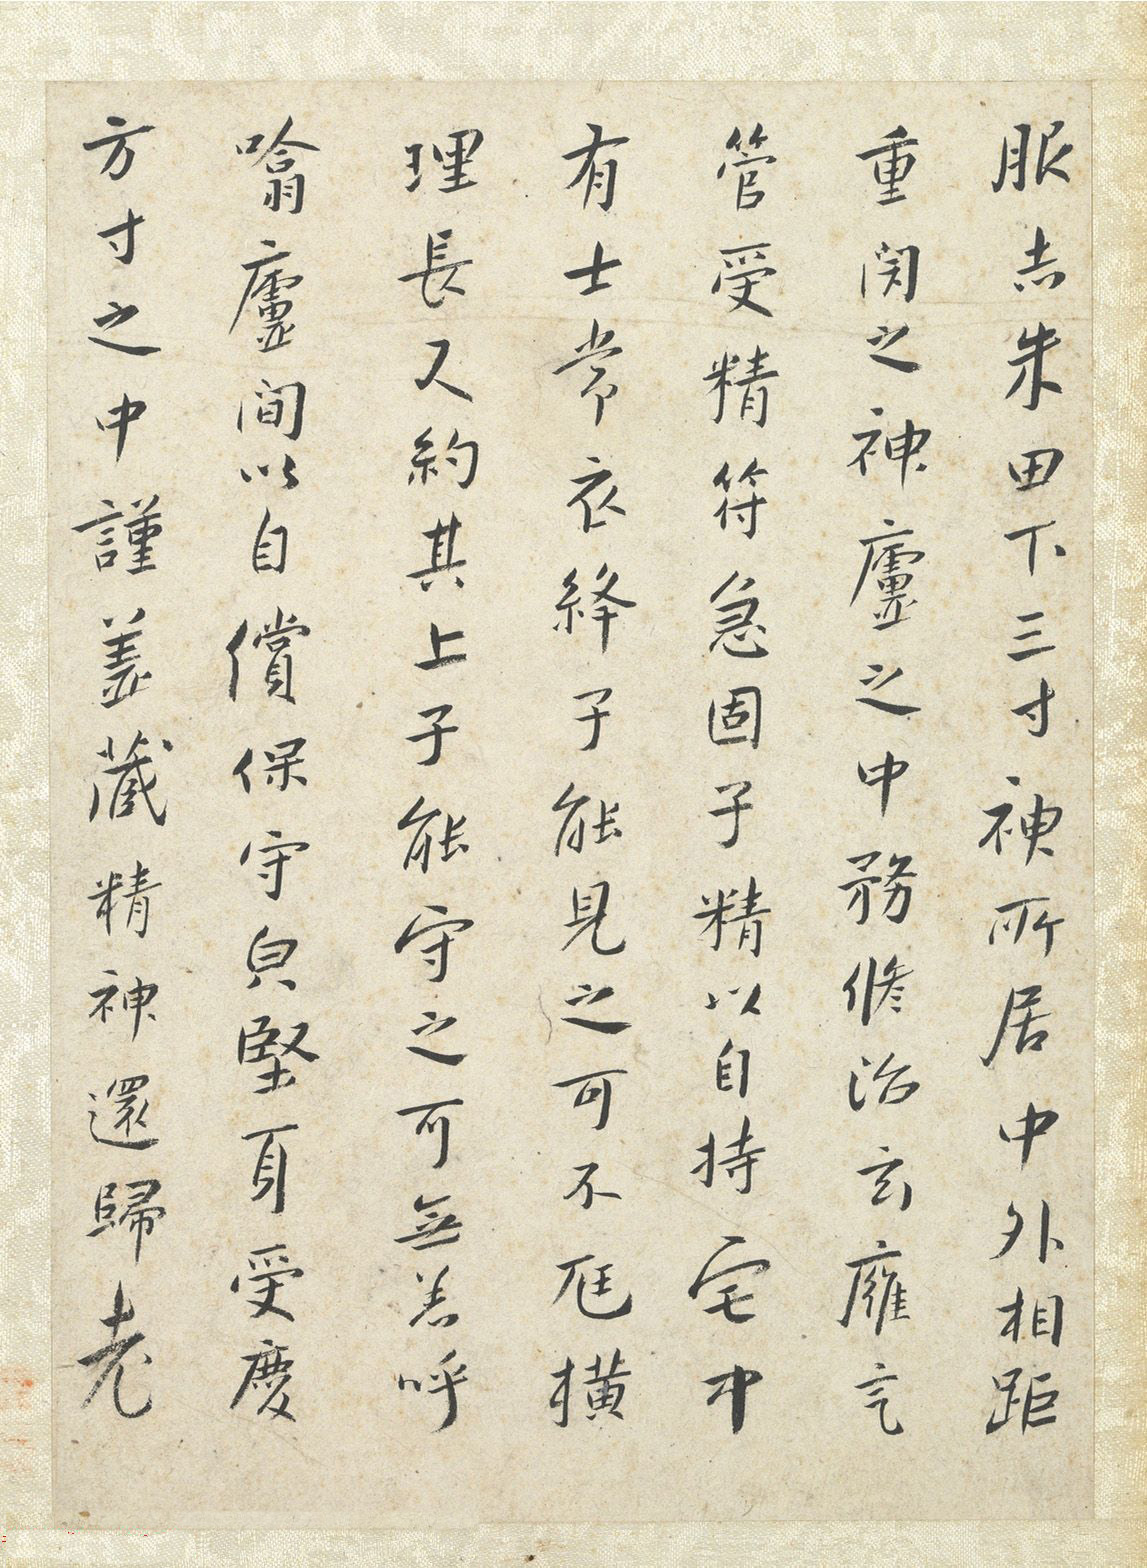 服志朱田下三寸神所居中外相距
重閇之神廬之中務脩治玄廱氣
管受精符急固子精以自持宅中
有士常衣絳子能見之可不尫橫
理長又約其上子能守之可無恙呼
噏廬間以自償保守皃堅身受慶
方寸之中謹盖藏精神還歸老